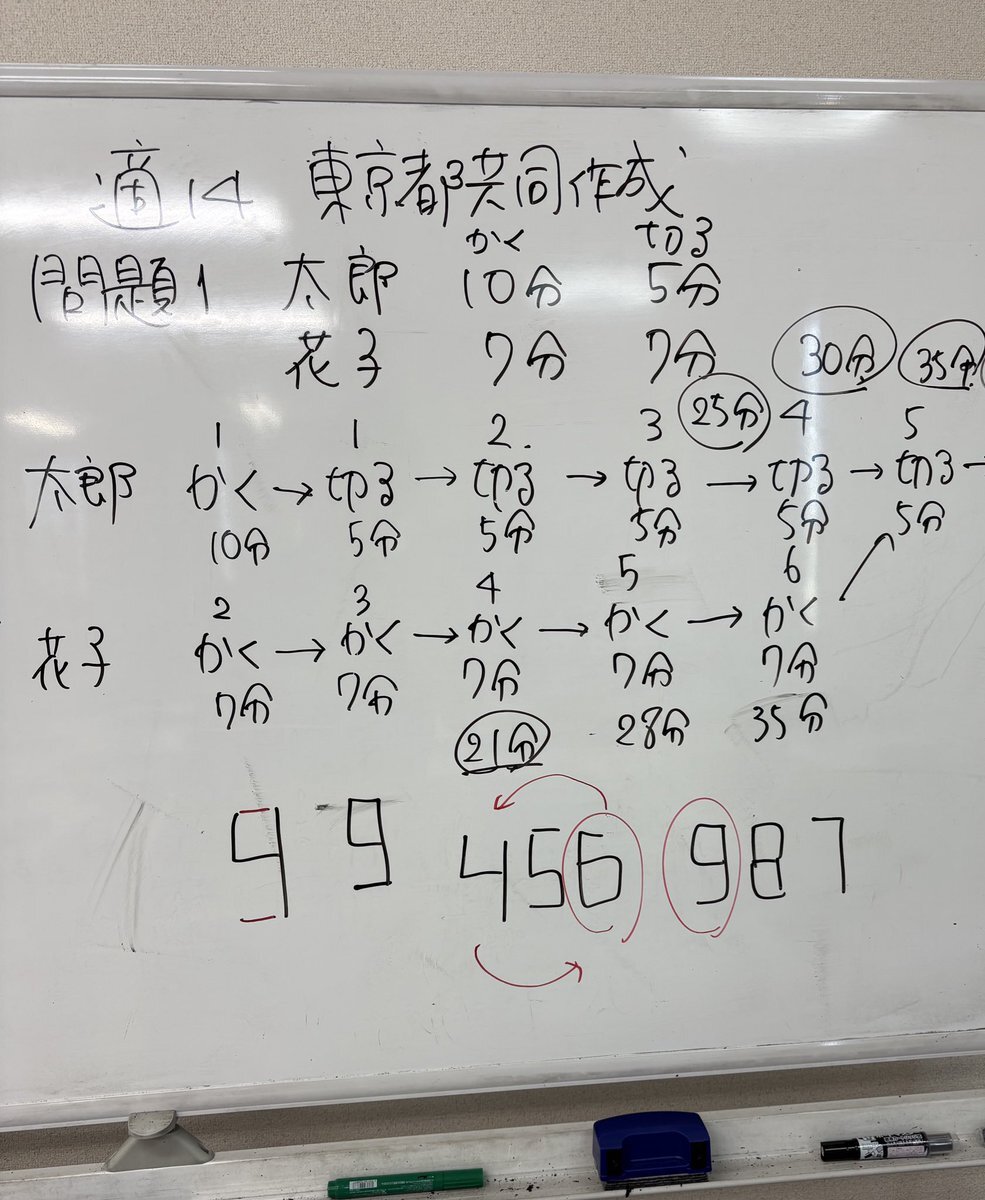 適14 東京都共同作成
かく 切る
問題1 太郎 10分 5分
花子 7分 7分 30分 35分
25分
1 1 2. 3 4 5
太郎 かく→切る→切る→切る→切る→切る→
10分 5分 5分 5分 5分 5分
2 3 4 5 6
花子 かく→かく→かく→かく→かく
7分 7分 7分 7分 7分
21分 28分 35分
9 9 456 987